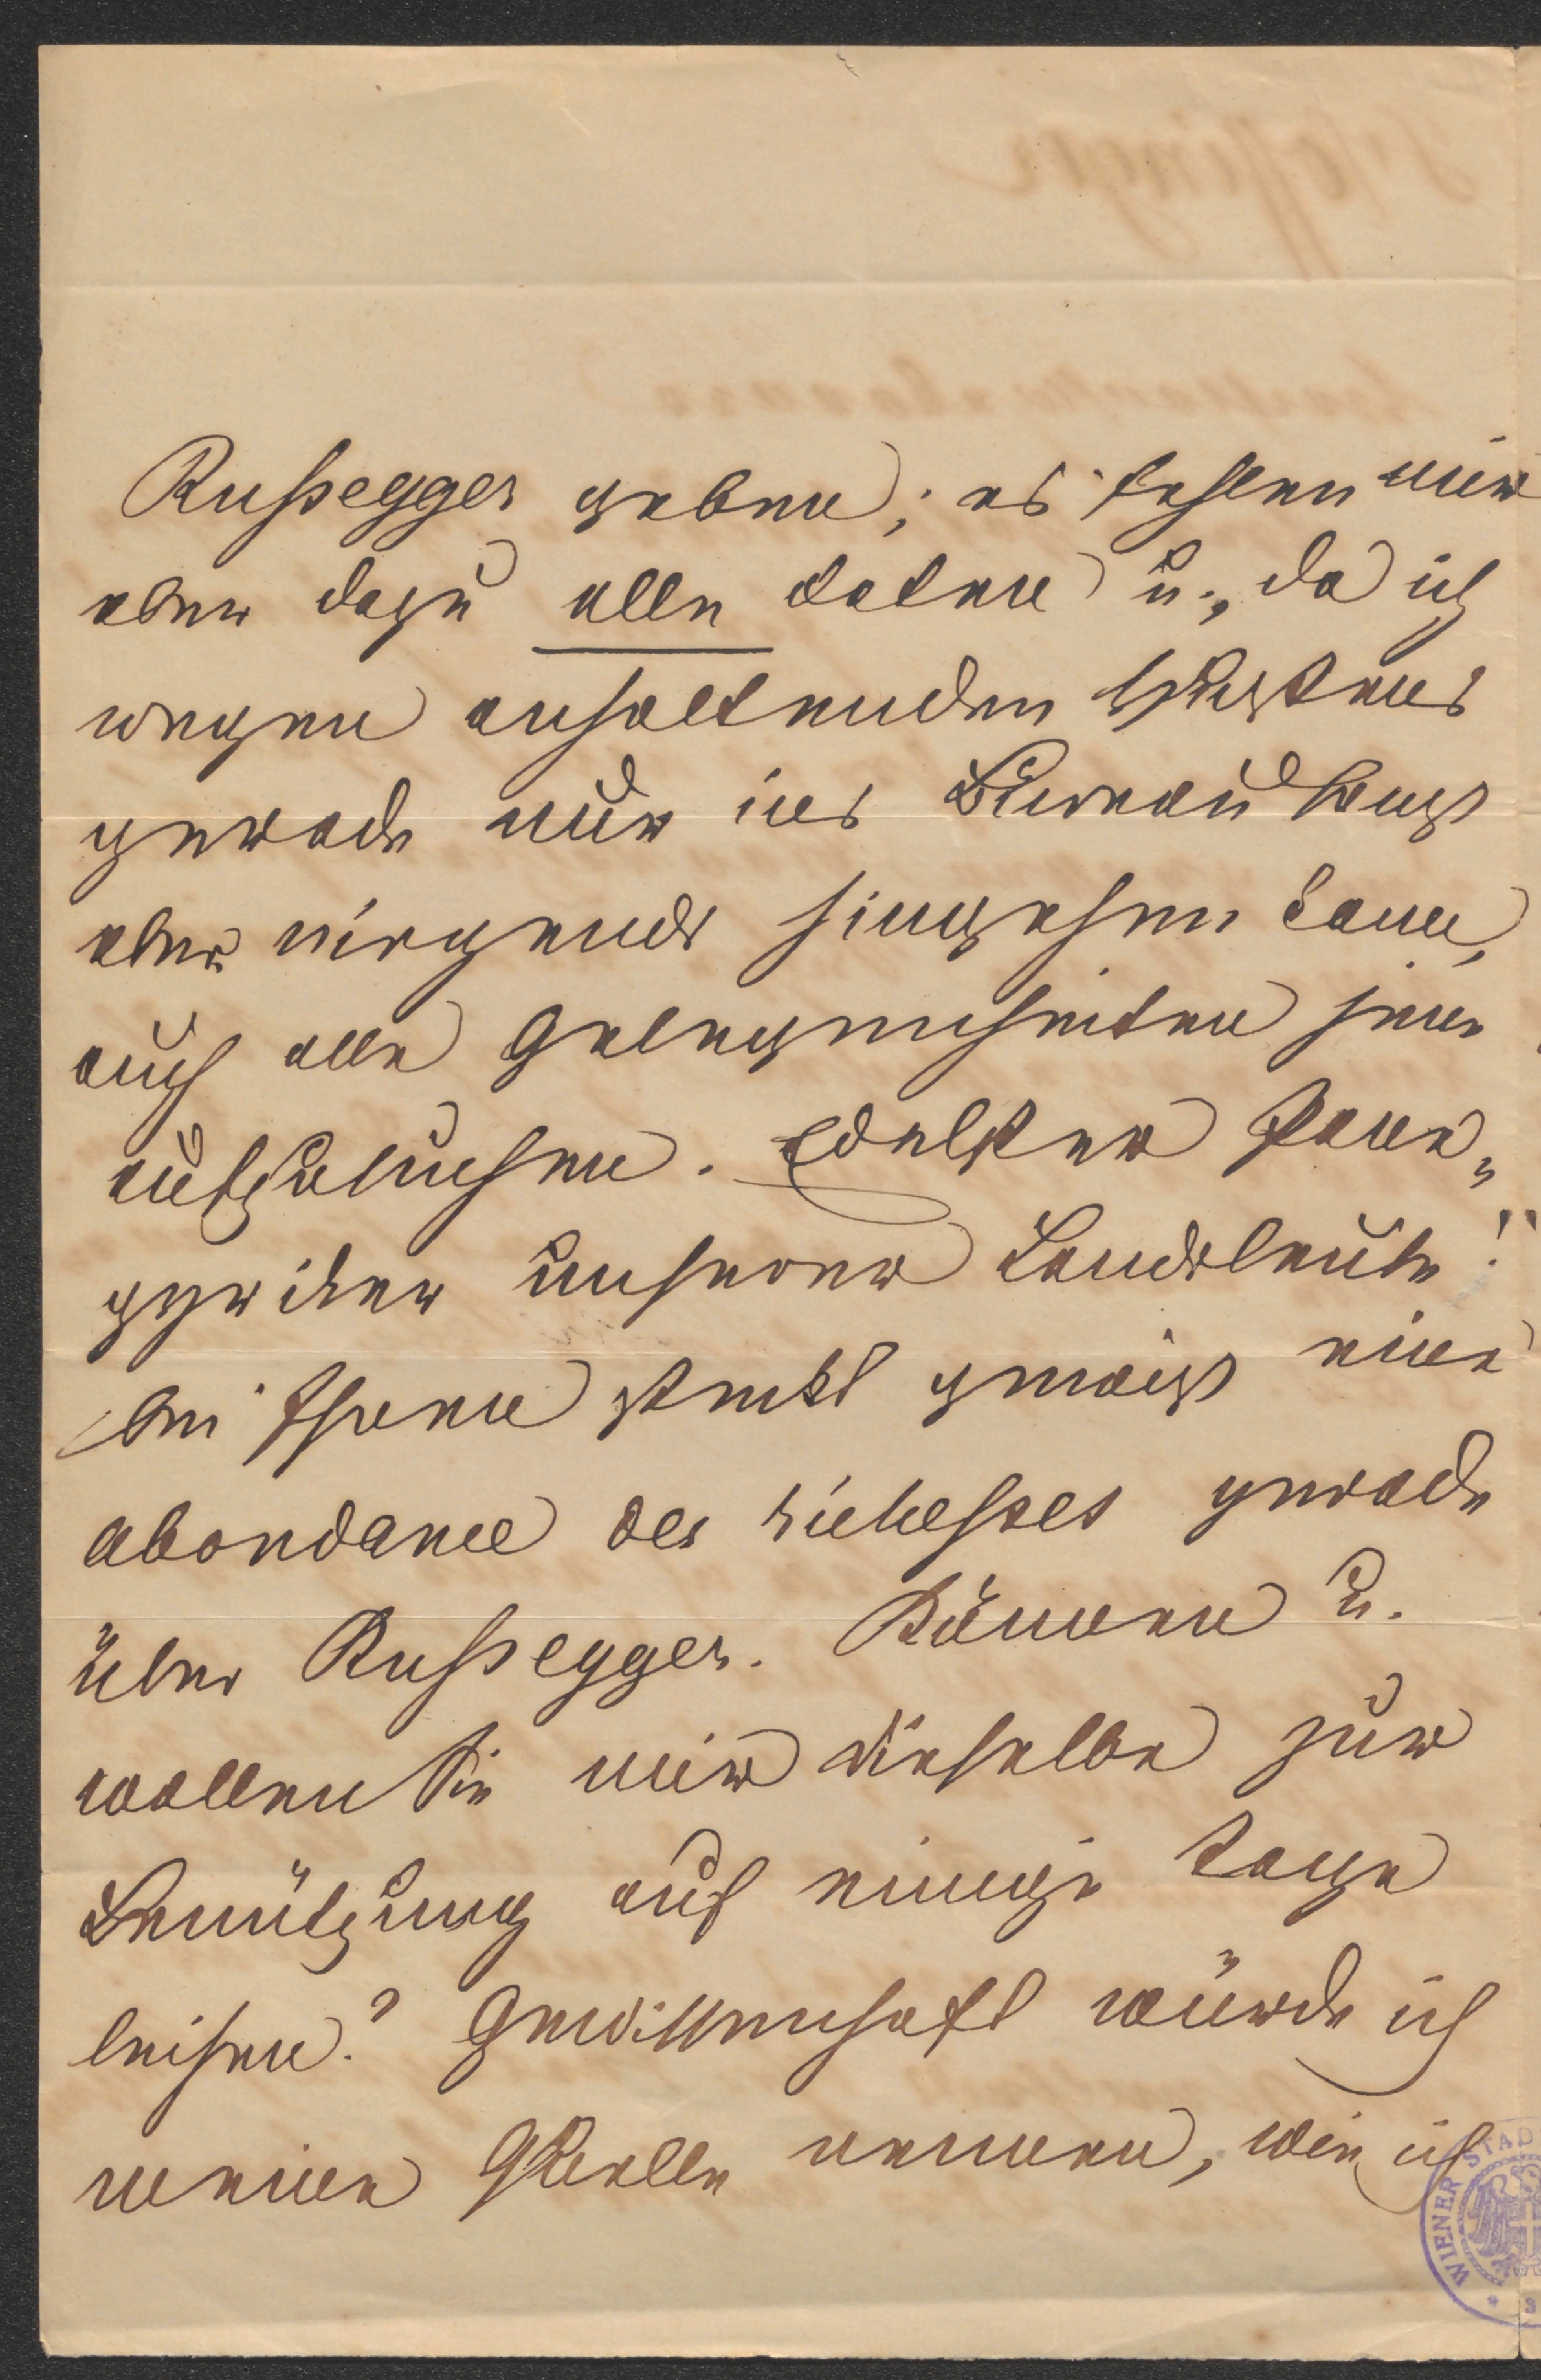 Russegger geben; es fehlen mir
aber dazu alle daten u., da ich
wegen anhaltenden Hustens
gerade nur ins Bureau sonst
aber nirgends hingehen kann,
auch alle Gelegenheiten sie
aufzusuchen. Edelster Pane-
gyriker unserer Landsleute!
bei Ihnen steckt gewiß eine
abondance des richesses gerade
über Russegger. Können u.
wollen Sie mir dieselbe zur
Benützung auf einige Tage
leihen? Gewissenhaft würde ich
meine Quelle nennen, wie ich
WIENER STAD